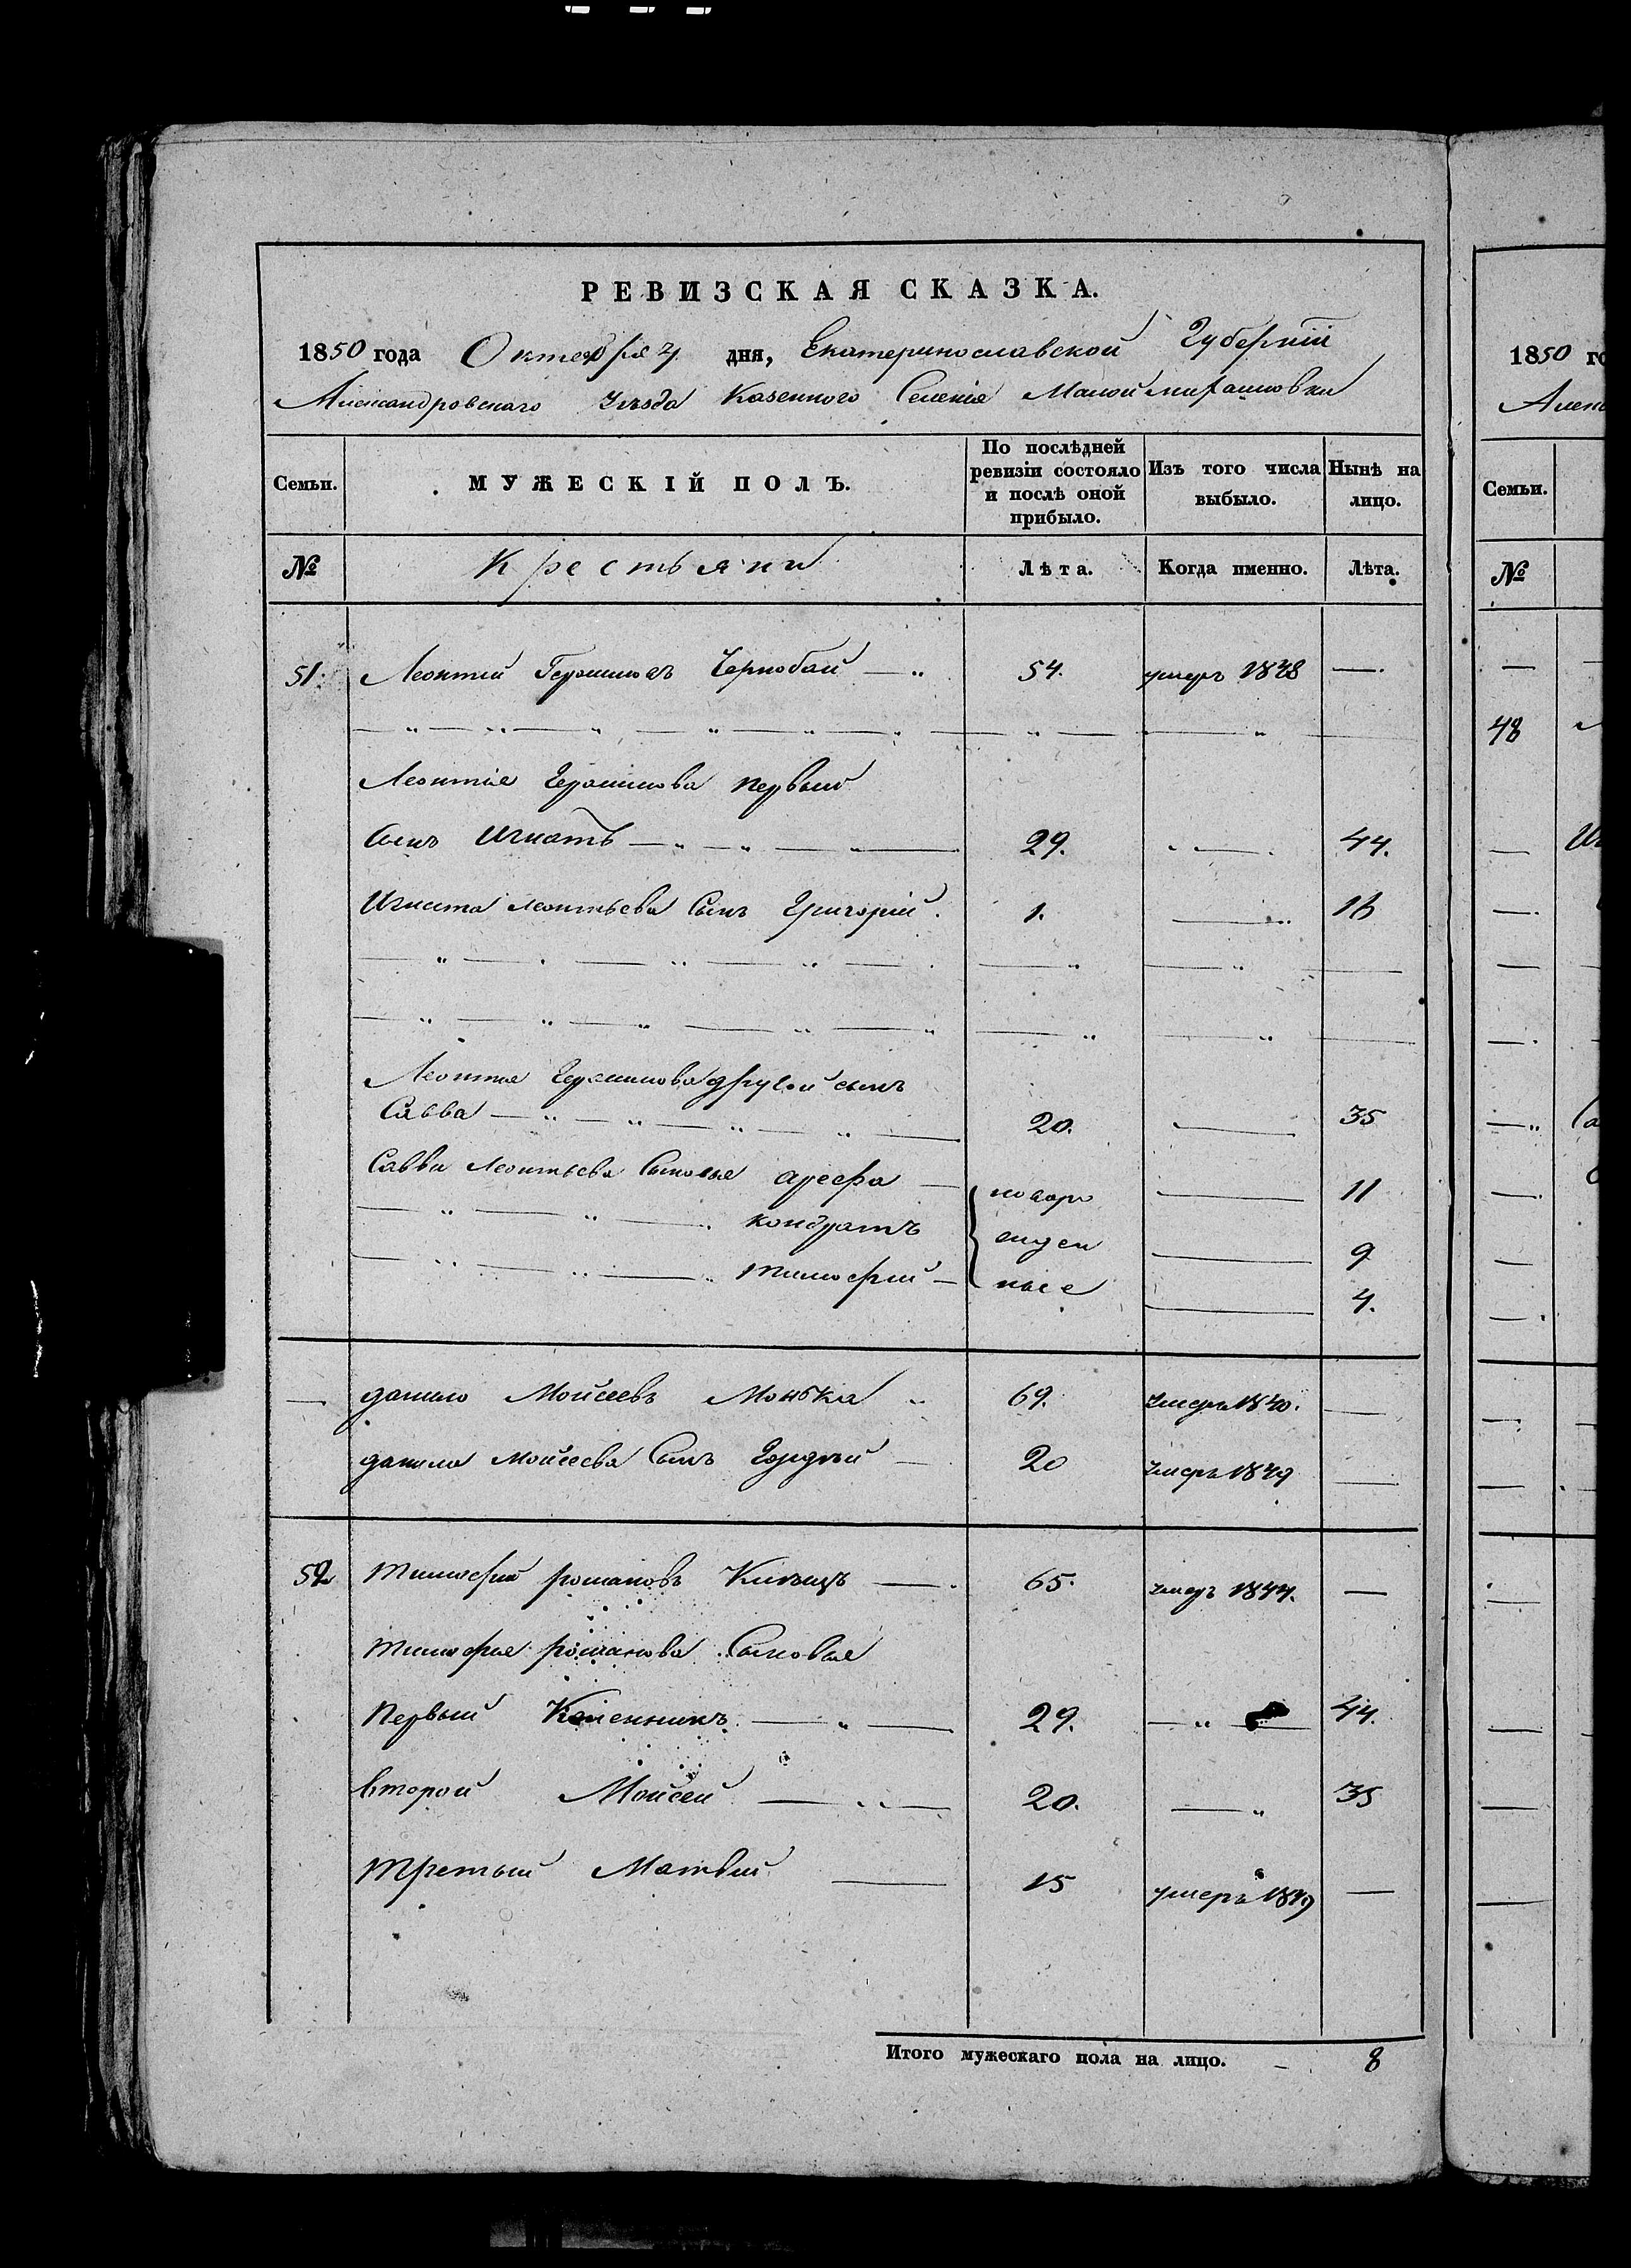 РЕВИЗСКАЯ СКАЗКА.
1850 года Октября 4 дня, Екатеринославской Губерніи
Александровскаго Уѣзда Казенного Селенія Малой
Семьи. МУЖЕСКІЙ ПОЛЪ. По послѣдней ревизіи состояло и послѣ оной прибыло. Изъ того числа выбыло. Нынѣ на лицо.
№ Крестьяни Лѣта. Когда именно. Лѣта.
51. Леонтий Герасимовъ Чернобай 54. умеръ 1838 —
Леонтія Герасимова первый
Сынъ Игнатъ 29. 44.
Игната Леонтьева Сынъ Григорій. 1. 16
Леонтія Герасимова другой сынъ
Савва 20. 35
Саввы Леонтьева Сыновья арефа новоро 11
кондратъ жден 9
тимофей ные 4.
— данило Мойсеевъ Монька 69. Умеръ 1840. —
данила Мойсеева Сынъ Гордѣй 20 Умеръ 1849 —
52 тимофей романовъ 65. умеръ 1844. —
тимофея романова Сыновья
первый Каленникъ 29. 44.
второй Мойсей 20. 35
третый Матвей 15 умеръ 1849 —
Итого мужескаго пола на лицо. 8
1850 го
Алек
Семьи.
№
48